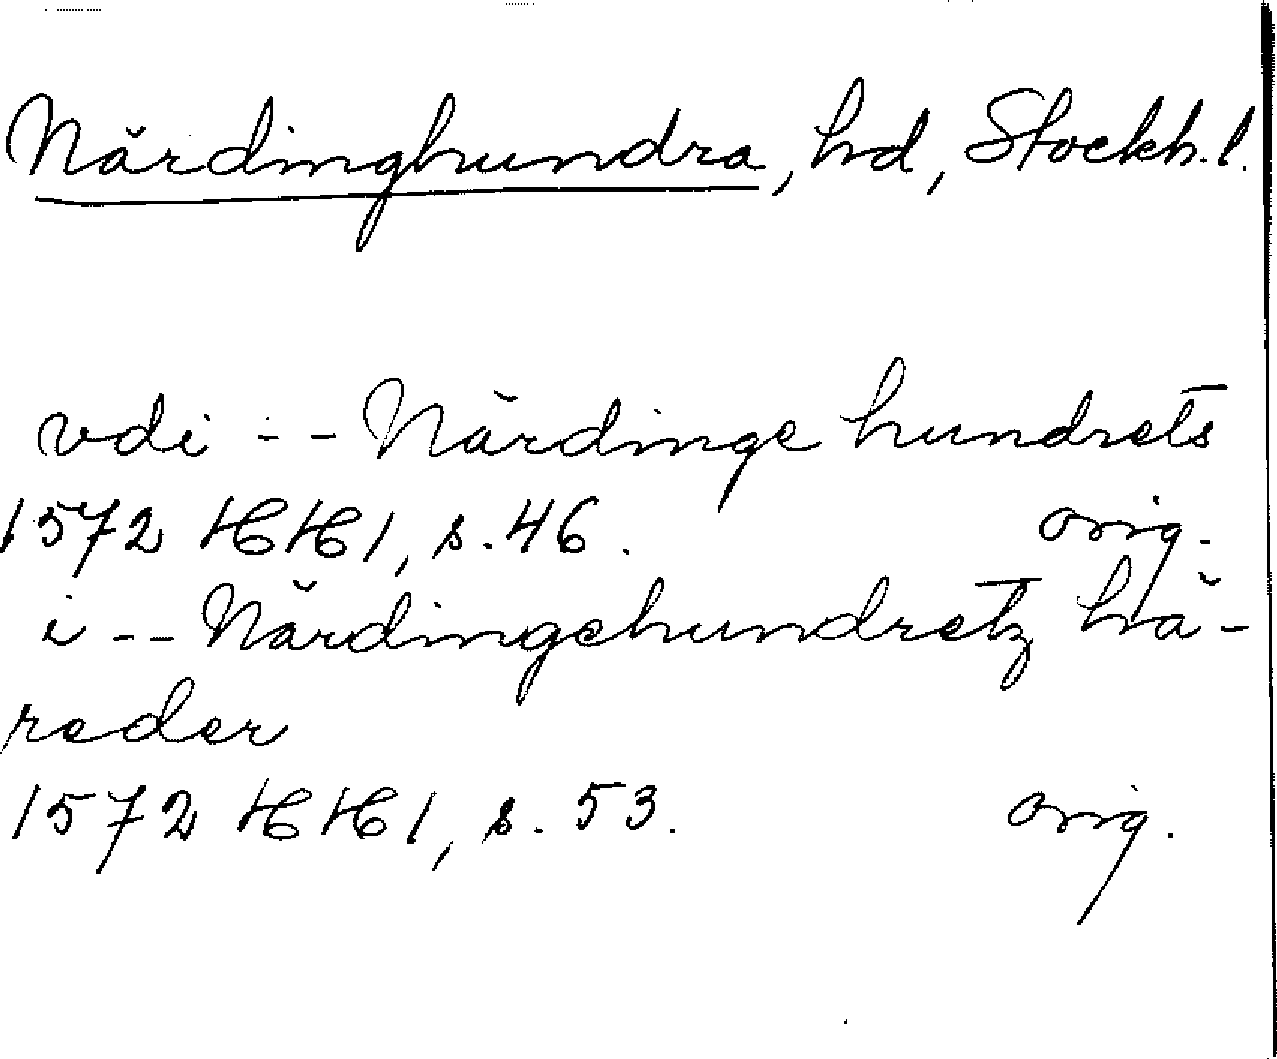 Närdinghundra, hd, Stockh. l.
vdi -- Närdinge hundrets
1572 HH1, s. 46. orig.
i -- Närdingehundretz hä-
reder
1572 HH1, s. 53. orig.